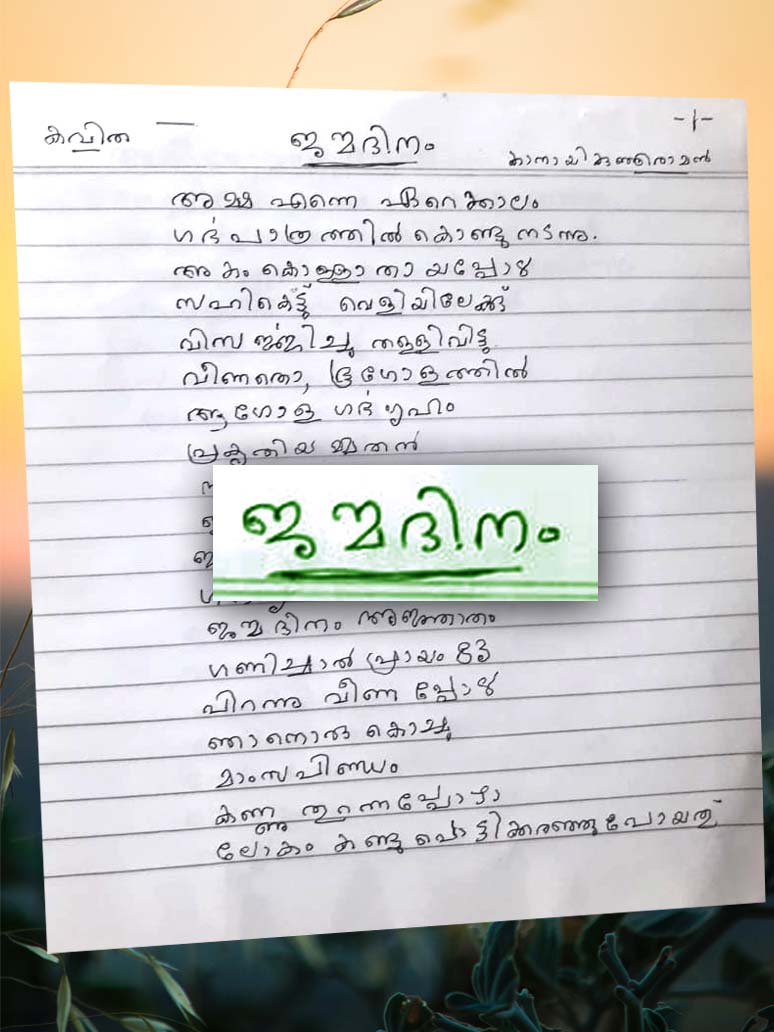 കവിത
ജന്മദിനം
-1-
കാനായി കുഞ്ഞിരാമൻ
അമ്മ എന്നെ ഏറെക്കാലം
ഗർഭപാത്രത്തിൽ കൊണ്ടു നടന്നു.
അകം കൊള്ളാതായപ്പോൾ
സഹികെട്ട് വെളിയിലേക്ക്
വിസർജ്ജിച്ചു തള്ളിവിട്ടു.
വീണതൊ, ഭൂഗോളത്തിൽ
ആ ഗോള ഗർഭഗൃഹം
പ്രകൃതിയമ്മതൻ
ജന്മദിനം
ജന്മദിനം അജ്ഞാതം
ഗണിച്ചാൽ പ്രായം 83
പിറന്നു വീണപ്പോൾ
ഞാനൊരു കൊച്ചു
മാംസപിണ്ഡം
കണ്ണു തുറന്നപ്പോഴാ
ലോകം കണ്ടു പൊട്ടിക്കരഞ്ഞുപോയത്